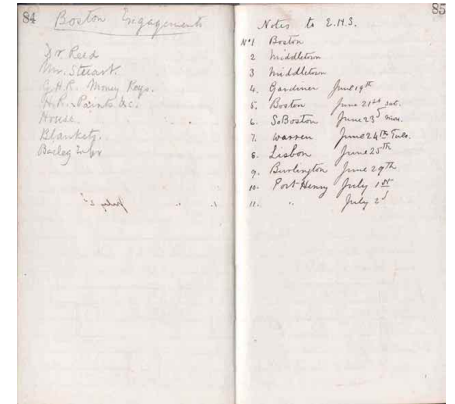 84
Boston Engagements
Dr. Reed
Mrs. Steuart.
G.H.R. Money, Keys.
H.R. Paints &c.
House.
Blankets.
85
Notes to E.H.S.
No 1 Boston
2 Middletown
3 Middletown
4. Gardiner June 19th
5. Boston June 21st
6. So Boston June 23d
7. Warren June 24th Tues.
8. Lisbon June 25th
9. Burlington June 29th
10. Port Henry July 1st
11. " July 2d